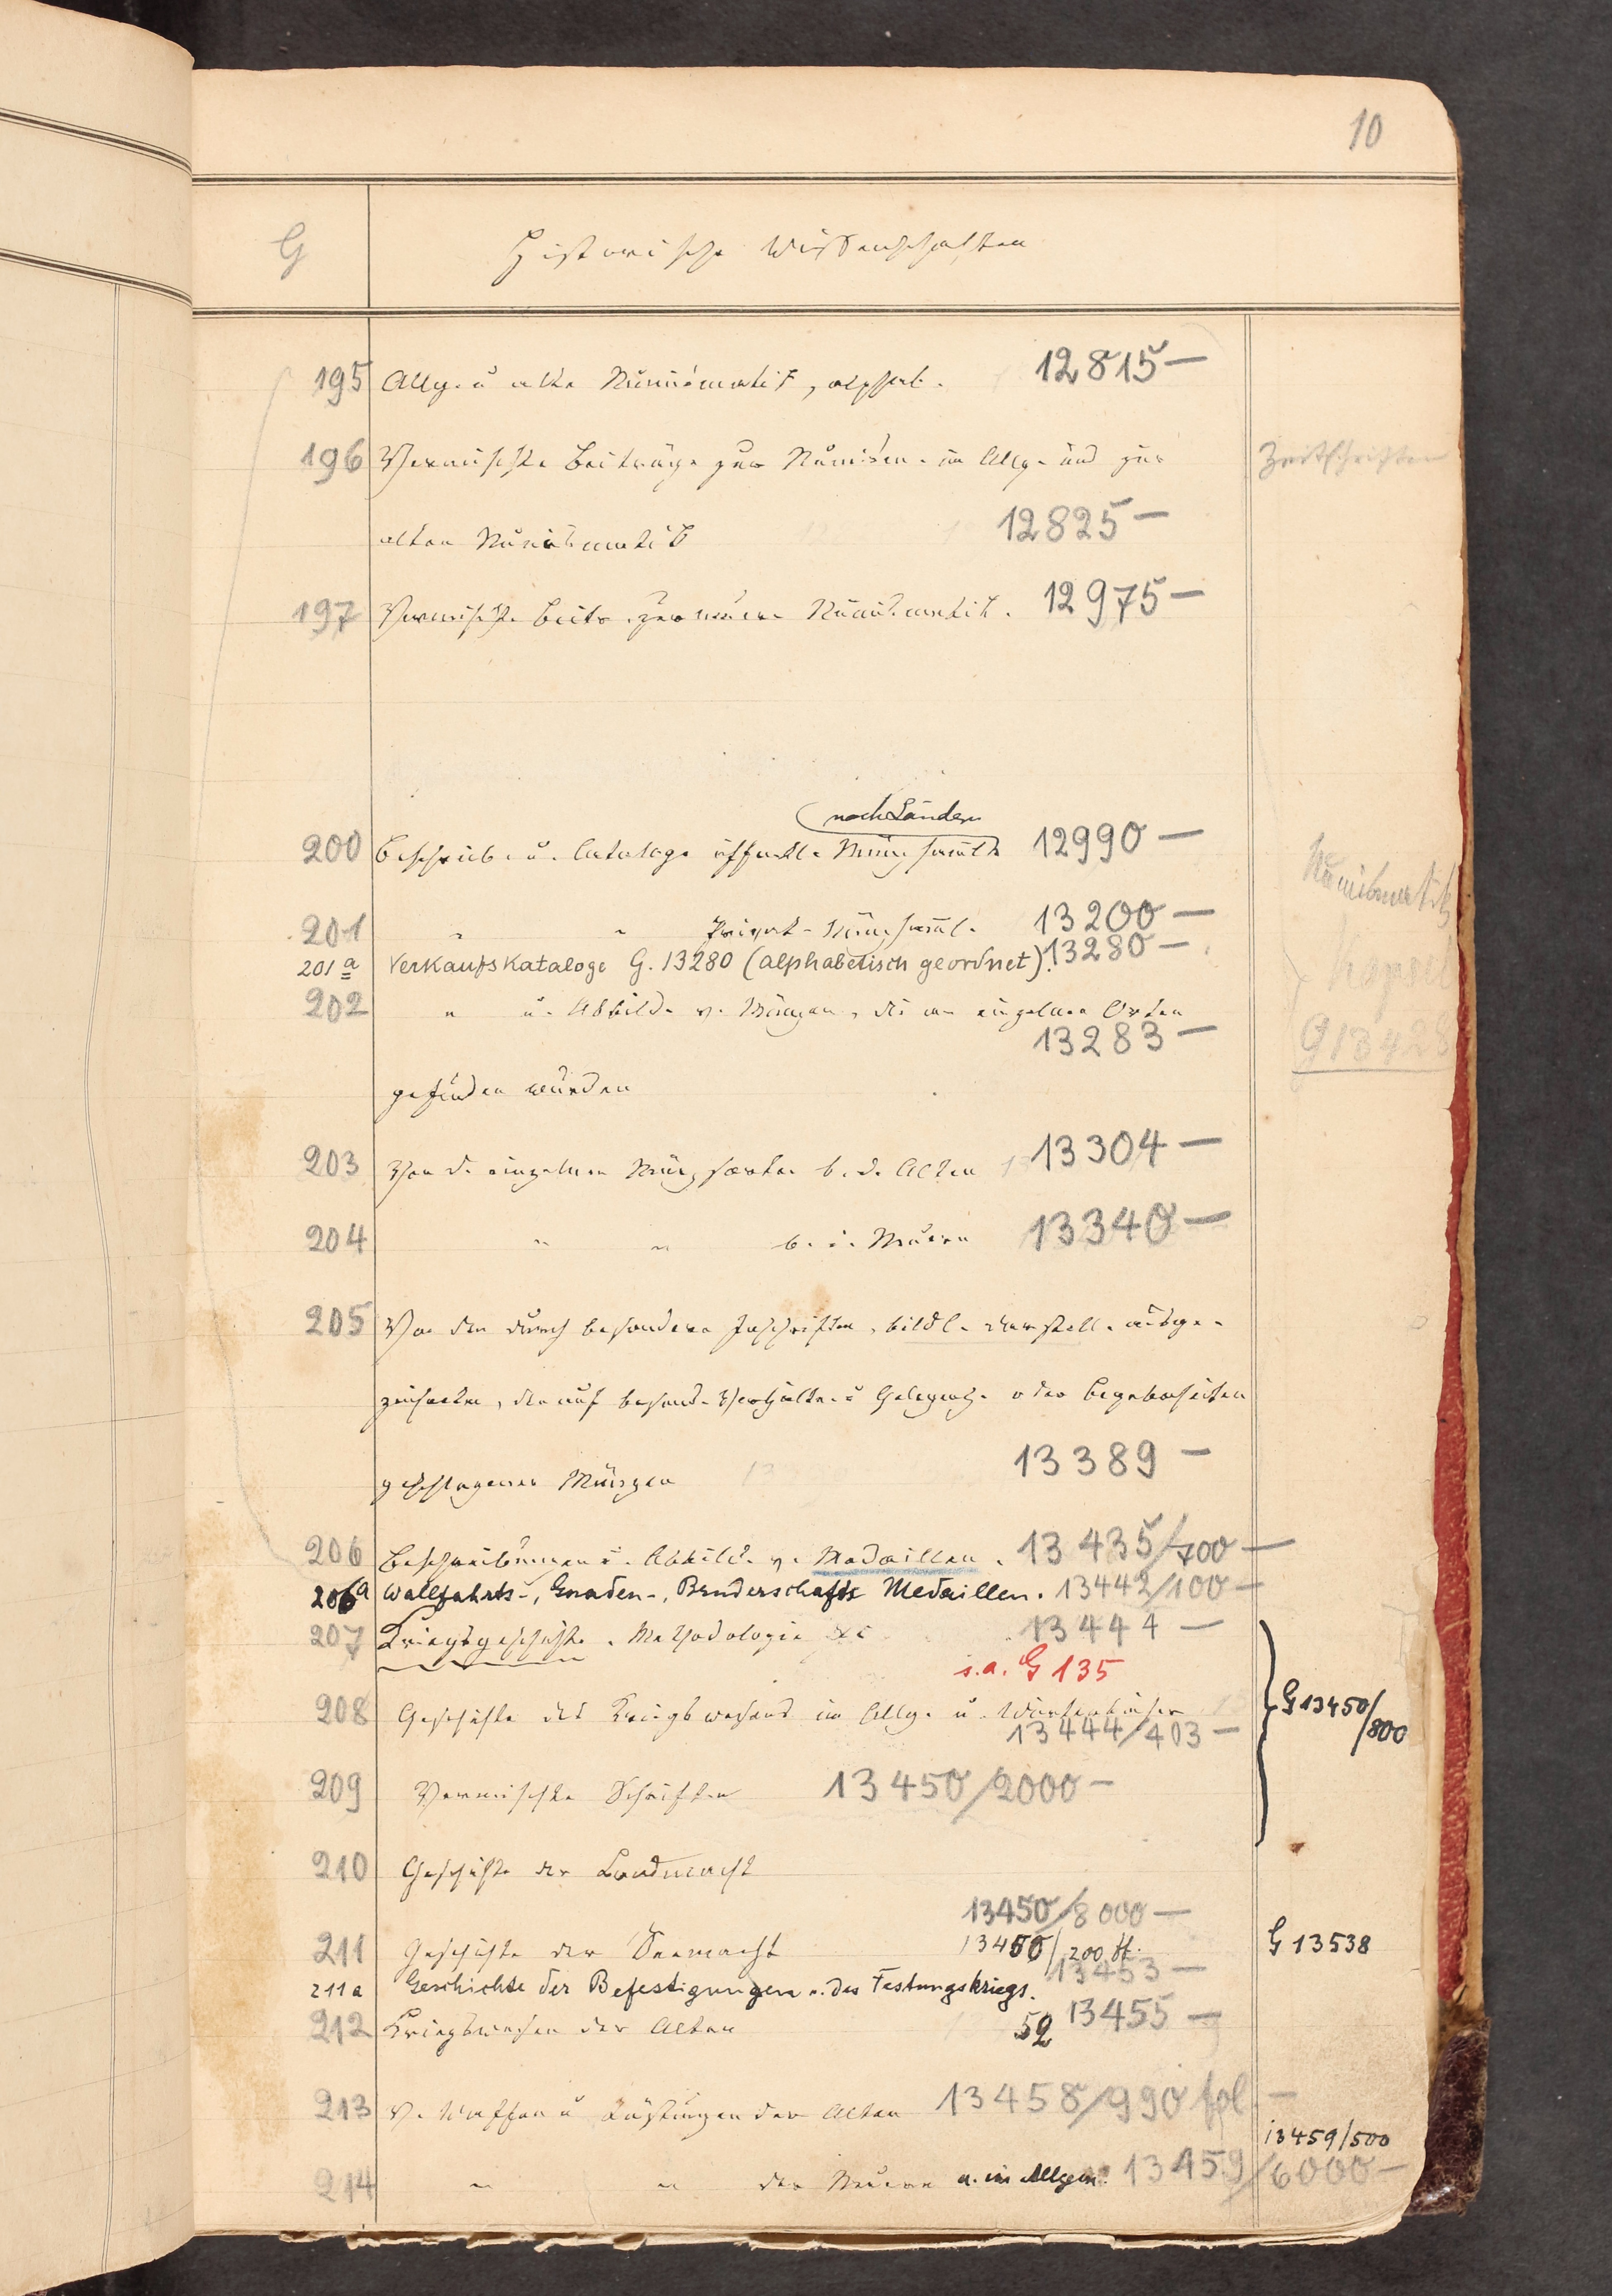 10
G Historische Wissenschaften
195 Allg. u alte Numismatik, alphab. 12815 —
196 Vermischte Beiträge zur Numism. im Allg. und zur Zeitschriften
alten Numismatik 12825 —
197 Vermischte Beitr. zur neuern Numismatik. 12975 —
nach Ländern
200 Beschreib. u. Cataloge öffentl. Münzsamml. 12990 —
Numismatik
201 " " Privat-Münzsamml. 13200 —
201a Verkaufskataloge G. 13280 (alphabetisch geordnet). 13280 —
Kapsel
202 " u. Abbild. v. Münzen, die an einzelnen Orten
13283 —
G 13428
gefunden wurden
203 Von d. einzelnen Münzsorten b. d. Alten 13304 —
204 " " b. d. Neuern 13340 —
205 Von den durch besondere Inschriften, bildl. Darstell. ausge-
zeichneten, der auf besond. Verhältn. u Gelegenh. oder Begebenheiten
geschlagenen Münzen 13389 —
206 Beschreibungen u. Abbild. v. Medaillen. 13435/700 —
206a Wallfahrts-, Gnaden-, Bruderschafts Medaillen. 13442/100 —
207 Kriegsgeschichte. Methodologie &c 13444 —
s.a. G 135
208 Geschichte des Kriegswesens im Allg. u. Wörterbücher
13444/403 —
G 13450/800
209 Vermischte Schriften 13450/2000 —
210 Geschichte der Landmacht
13450/8000 —
211 Geschichte der Seemacht 13450/200 ff. G 13538
211a Geschichte der Befestigungen u. des Festungskriegs. 13453 —
212 Kriegswesen der Alten 52 13455 —
213 V. Waffen u Rüstungen der Alten 13458/990 fol. —
13459/500
214 " " der Neuern u. im Allgem. 13459/6000 —